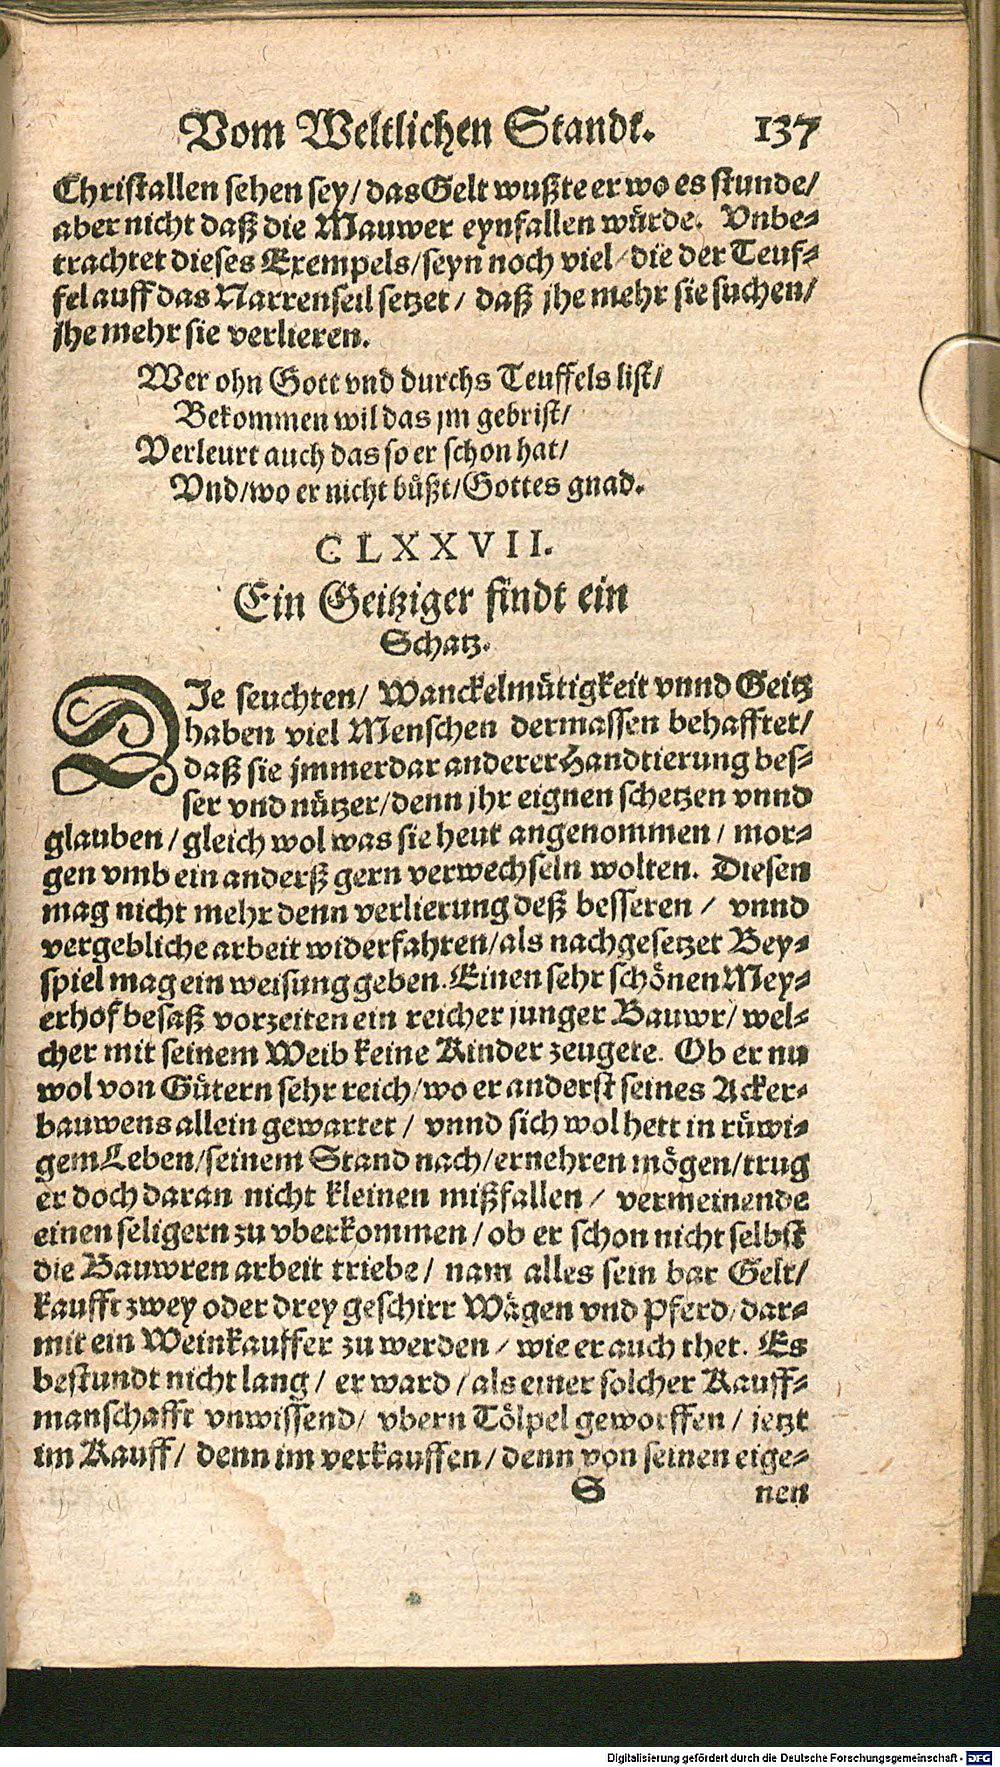 Vom Weltlichen Standt. 137
Christallen sehen sey/ das Gelt wußte er wo es stunde/
aber nicht daß die Mauwer eynfallen würde. Vnbe-
trachtet dieses Exempels/ seyn noch viel/ die der Teuf-
fel auff das Narrenseil setzet/ daß jhe mehr sie suchen/
jhe mehr sie verlieren.
Wer ohn Gott vnd durchs Teuffels list/
Bekommen wil das jm gebrist/
Verleurt auch das so er schon hat/
Vnd/ wo er nicht büßt/ Gottes gnad.
CLXXVII.
Ein Geitziger findt ein
Schatz.
DIe seuchten/ Wanckelmütigkeit vnnd Geitz
haben viel Menschen dermassen behafftet/
daß sie jmmerdar anderer Handtierung bes-
ser vnd nützer/ denn jhr eignen schetzen vnnd
glauben/ gleich wol was sie heut angenommen/ mor-
gen vmb ein anderß gern verwechseln wolten. Diesen
mag nicht mehr denn verlierung deß besseren/ vnnd
vergebliche arbeit widerfahren/ als nachgesetzet Bey-
spiel mag ein weisung geben. Einen sehr schönen Mey-
erhof besaß vorzeiten ein reicher junger Bauwr/ wel-
cher mit seinem Weib keine Kinder zeugete. Ob er nu
wol von Gütern sehr reich/ wo er anderst seines Acker-
bauwens allein gewartet/ vnnd sich wol hett in rüwi-
gem Leben/ seinem Stand nach/ ernehren mögen/ trug
er doch daran nicht kleinen mißfallen/ vermeinende
einen seligern zu vberkommen/ ob er schon nicht selbst
die Bauwren arbeit triebe/ nam alles sein bar Gelt/
kaufft zwey oder drey geschirr Wägen vnd Pferd/ dar-
mit ein Weinkauffer zu werden/ wie er auch thet. Es
bestundt nicht lang/ er ward/ als einer solcher Kauff-
manschafft vnwissend/ vbern Tölpel geworffen/ jetzt
im Kauff/ denn im verkauffen/ denn von seinen eige-
S nen
Digitalisierung gefördert durch die Deutsche Forschungsgemeinschaft - DFG